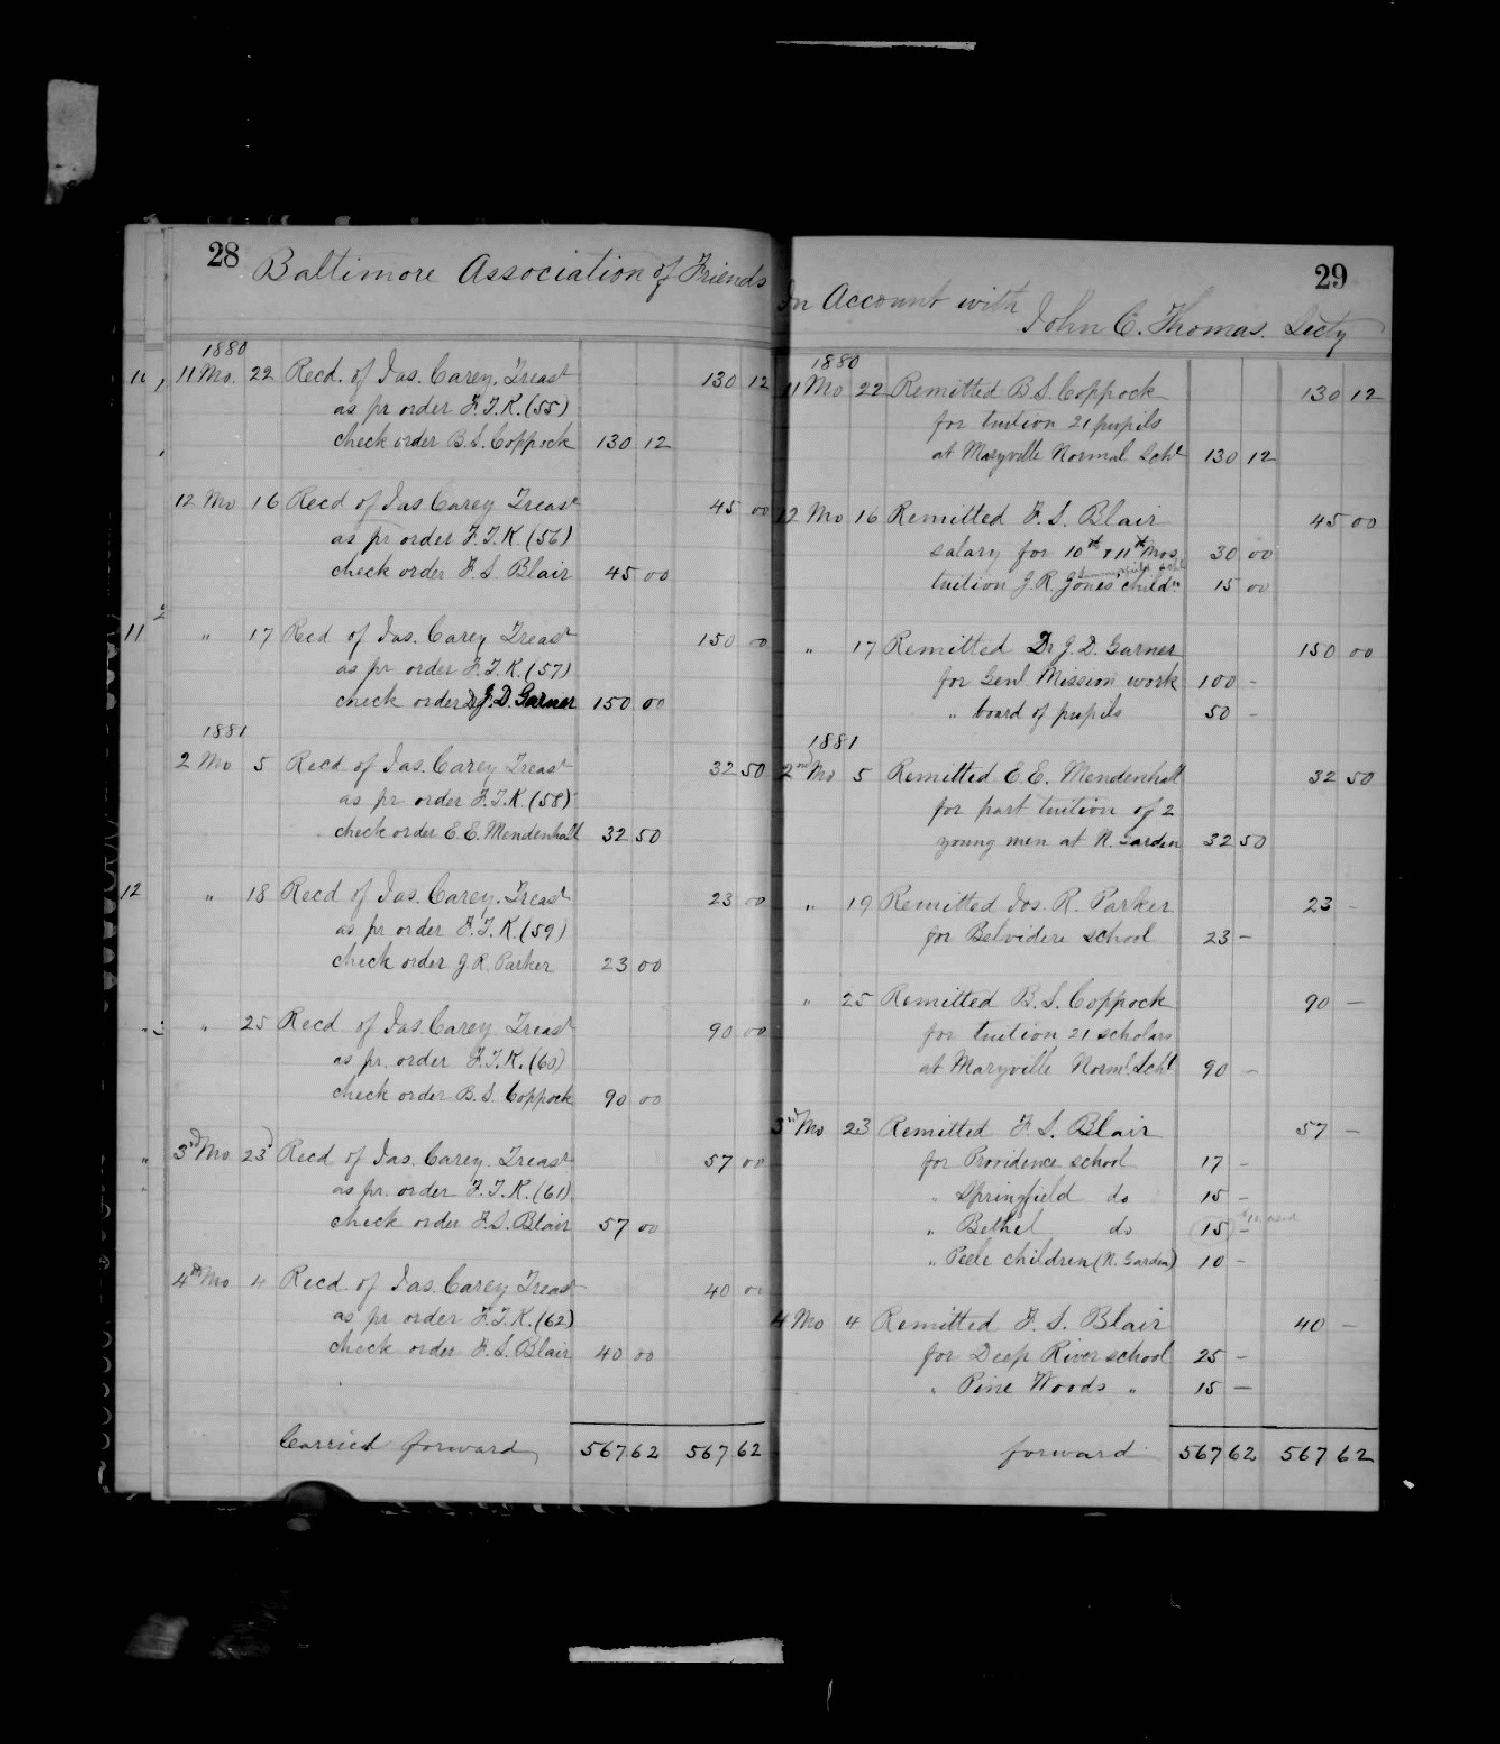 28
Baltimore Association of Friends
1880
11 Mo. 22 Recd. of Jas. Carey. Treast 130 12
as pr order F.T.K. (55)
check order B.S. Coppock 130 12
12 Mo 16 Recd of Jas. Carey Treast 45 00
as pr order F.T.K. (56)
check order F.S. Blair 45 00
11
" 17 Recd of Jas. Carey Treast 150 00
as pr order F.T.K. (57)
check order Dr J.D. Garner 150 00
1881
2 Mo 5 Recd of Jas. Carey Treast 32 50
as pr. order F.T.K. (58)
check order E.E. Mendenhall 32 50
12
" 18 Recd of Jas. Carey. Treast 23 00
as pr order F.T.K. (59)
check order J.R. Parker 23 00
" 25 Recd of Jas. Carey Treast 90 00
as pr. order F.T.K. (60)
check order B.S. Coppock 90 00
3rd Mo 23 Recd of Jas. Carey. Treast 57 00
as pr. order F.T.K. (61)
check order F.S. Blair 57 00
4th Mo 4 Recd. of Jas. Carey Treast 40 00
as pr order F.T.K. (62)
check order F.S. Blair 40 00
Carried forward 567 62 567 62
29
In Account with
John C. Thomas. Secty
1880
11 Mo 22 Remitted B.S. Coppock 130 12
for tuition 21 pupils
at Maryville Normal Schl 130 12
12 Mo 16 Remitted F.S. Blair 45 00
salary for 10th & 11th Mos 30 00
tuition J.R. Jones' childn 15 00
" 17 Remitted Dr J.D. Garner 150 00
for Genl Mission work 100 -
" board of pupils 50 -
1881
2nd Mo 5 Remitted E.E. Mendenhall 32 50
for part tuition of 2
young men at N. Garden 32 50
" 19 Remitted Jos. R. Parker 23 -
for Belvidere school 23 -
" 25 Remitted B.S. Coppock 90 -
for tuition 21 scholars
at Maryville Norml. Schl 90 -
3rd Mo 23 Remitted F.S. Blair 57 -
for Providence school 17 -
" Springfield do 15 -
" Bethel do 15 -
" Peele children (N. Garden) 10 -
4 Mo 4 Remitted F.S. Blair 40 -
for Deep River school 25 -
" Pine Woods " 15 -
forward 567 62 567 62